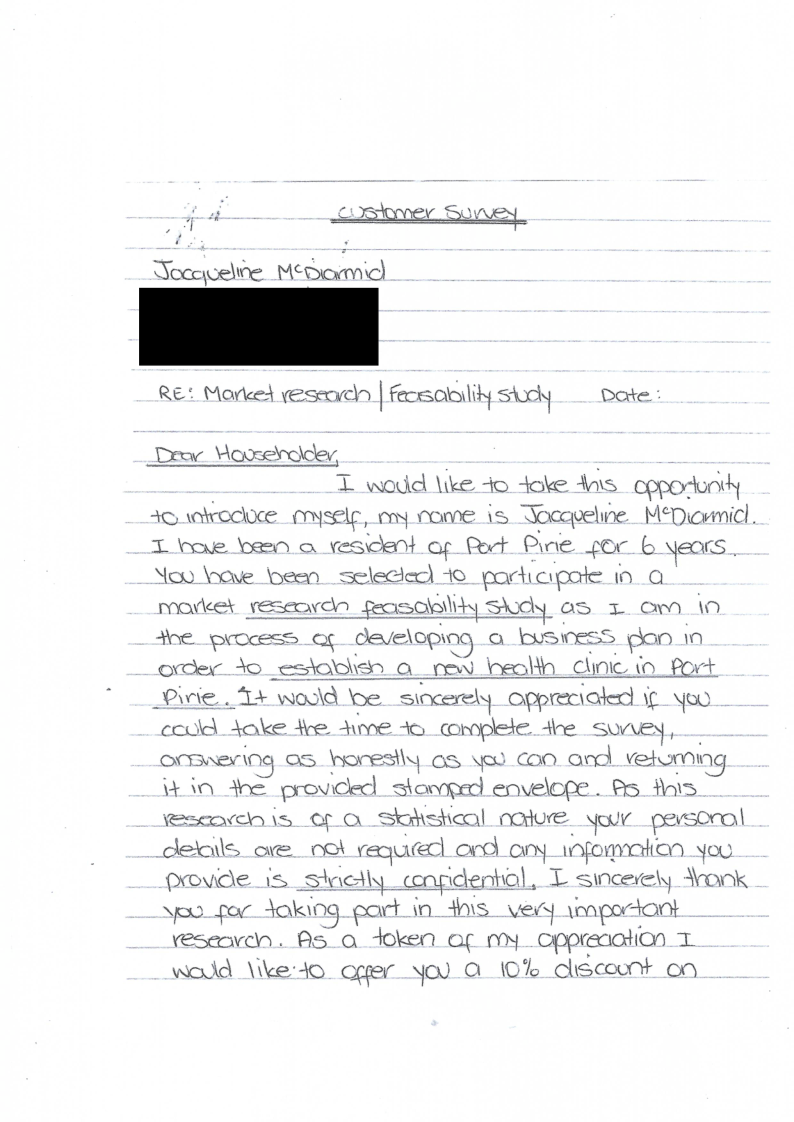 Customer Survey
Jacqueline McDiarmid
RE: Market research | Feasability study Date:
Dear Householder,
I would like to take this opportunity
to introduce myself, my name is Jacqueline McDiarmid.
I have been a resident of Port Pirie for 6 years.
You have been selected to participate in a
market research feasability study as I am in
the process of developing a business plan in
order to establish a new health clinic in Port
Pirie. It would be sincerely appreciated if you
could take the time to complete the survey,
answering as honestly as you can and returning
it in the provided stamped envelope. As this
research is of a statistical nature your personal
details are not required and any information you
provide is strictly confidential. I sincerely thank
you for taking part in this very important
research. As a token of my appreciation I
would like to offer you a 10% discount on